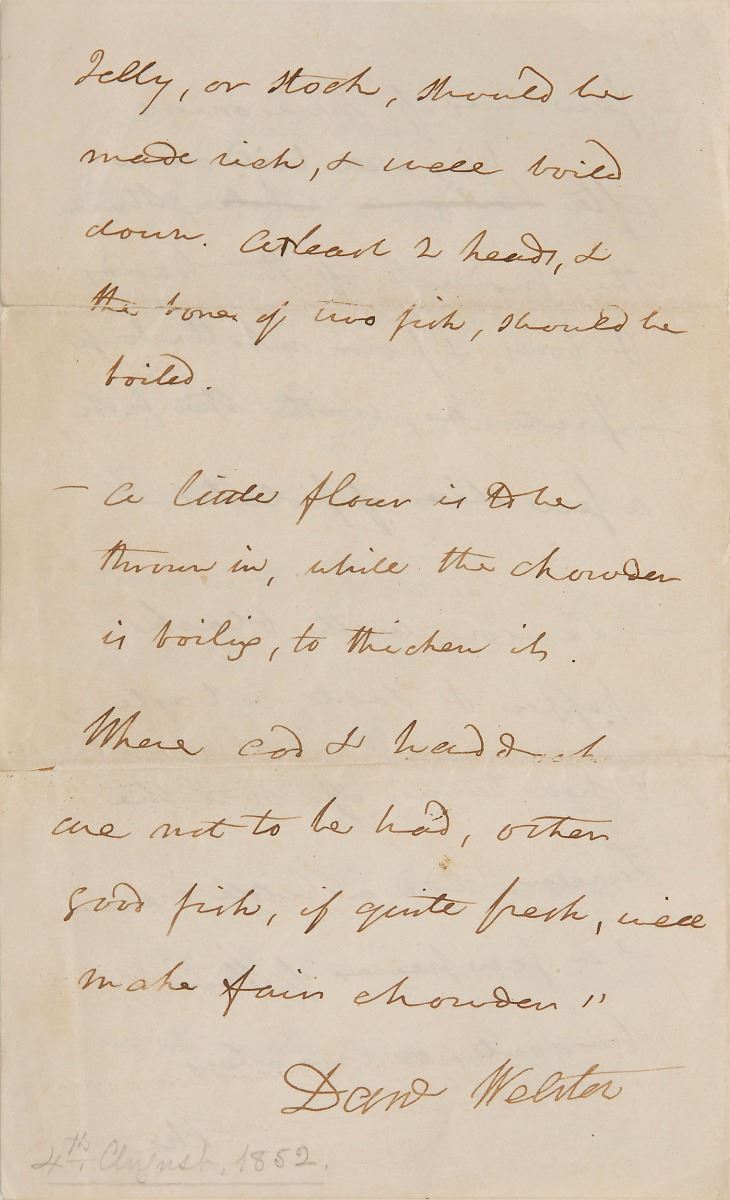 Jelly, or stock, should be
made rich, & well boild
down. At least 2 heads, &
the bones of two fish, should be
boiled.
– A little flour is to be
thrown in, while the chowder
is boiling, to thicken it.
Where cod & haddock
are not to be had, other
good fish, if quite fresh, will
make fair chowder "
Danl Webster
4th. August, 1852.